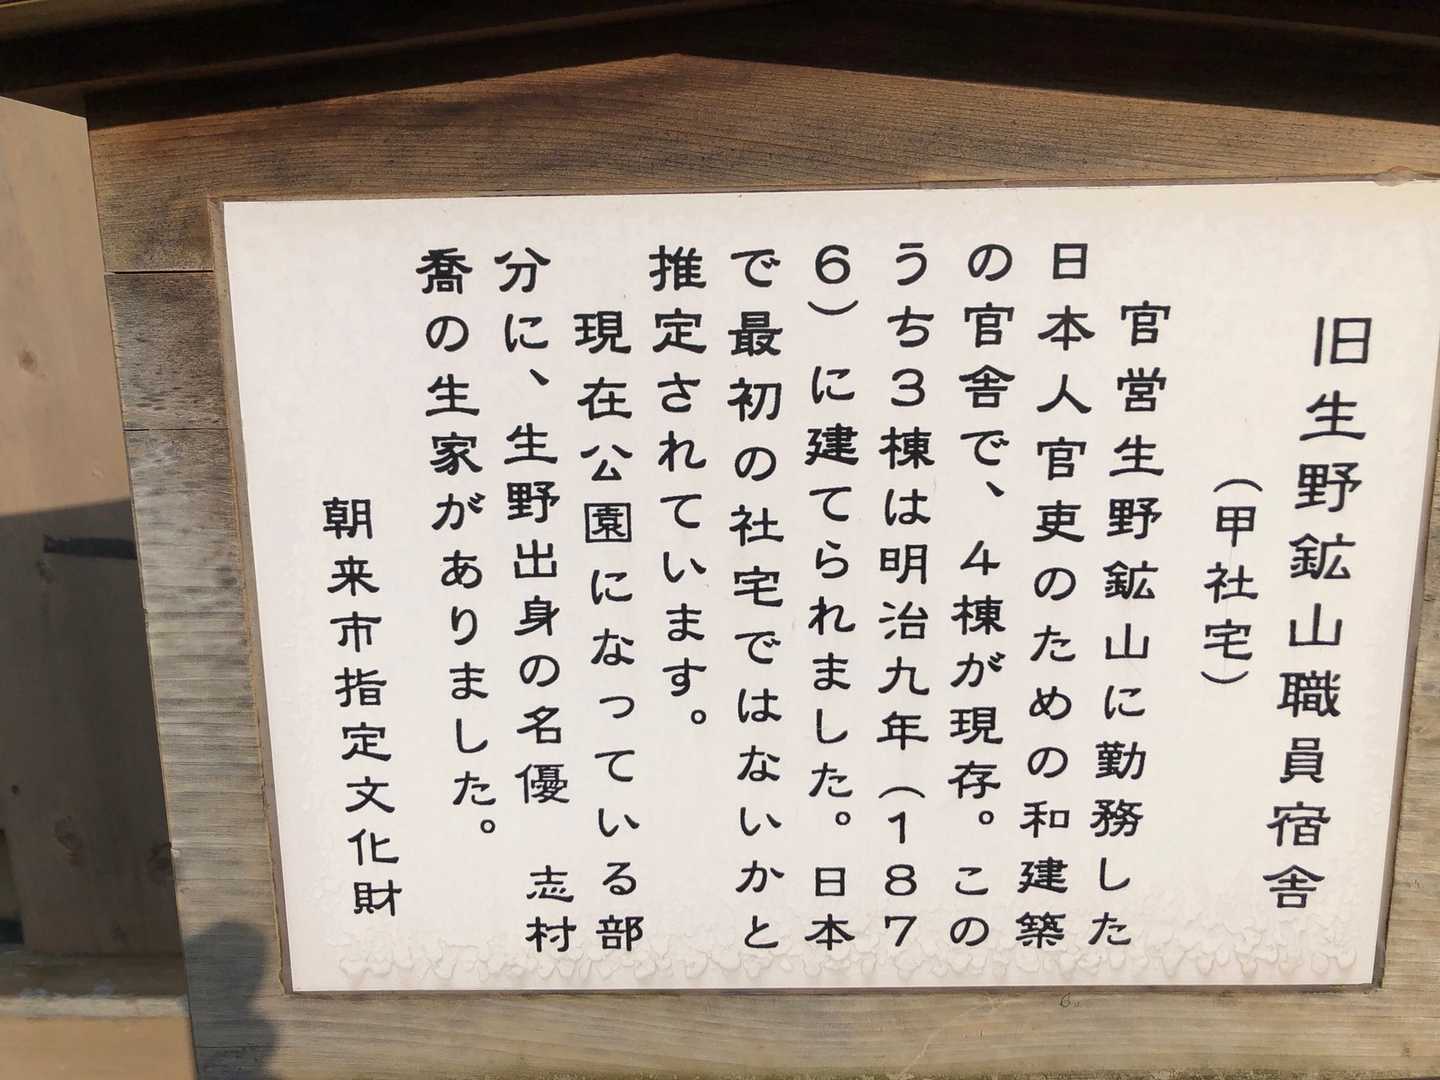 旧生野鉱山職員宿舎
（甲社宅）
官営生野鉱山に勤務した
日本人官吏のための和建築
の官舎で、４棟が現存。この
うち３棟は明治九年（１８７
６）に建てられました。日本
で最初の社宅ではないかと
推定されています。
現在公園になっている部
分に、生野出身の名優　志村
喬の生家がありました。
朝来市指定文化財